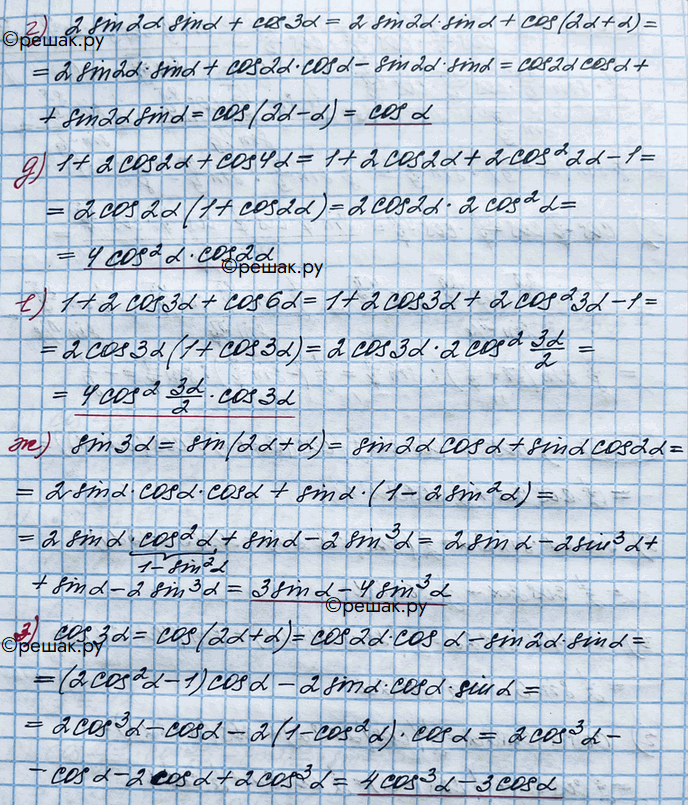 ©решак.ру
г) 2 sin2α sinα + cos3α = 2 sin2α·sinα + cos(2α+α) =
= 2 sin2α·sinα + cos2α·cosα − sin2α·sinα = cos2α cosα +
+ sin2α sinα = cos(2α−α) = cosα
д) 1 + 2 cos2α + cos4α = 1 + 2 cos2α + 2 cos² 2α − 1 =
©решак.ру
= 2 cos2α (1 + cos2α) = 2 cos2α · 2 cos² α =
= 4 cos² α · cos2α
©решак.ру
е) 1 + 2 cos3α + cos6α = 1 + 2 cos3α + 2 cos² 3α − 1 =
= 2 cos3α (1 + cos3α) = 2 cos3α · 2 cos² 3α/2 =
= 4 cos² 3α/2 · cos3α
ж) sin3α = sin(2α+α) = sin2α cosα + sinα cos2α =
= 2 sinα·cosα·cosα + sinα·(1 − 2 sin² α) =
= 2 sinα·cos² α + sinα − 2 sin³ α = 2 sinα − 2 sin³ α +
1 − sin² α
+ sinα − 2 sin³ α = 3 sinα − 4 sin³ α
©решак.ру
з) cos3α = cos(2α+α) = cos2α·cosα − sin2α·sinα =
©решак.ру
= (2 cos² α − 1) cosα − 2 sinα·cosα·sinα =
= 2 cos³ α − cosα − 2(1 − cos² α)·cosα = 2 cos³ α −
− cosα − 2 cosα + 2 cos³ α = 4 cos³ α − 3 cosα